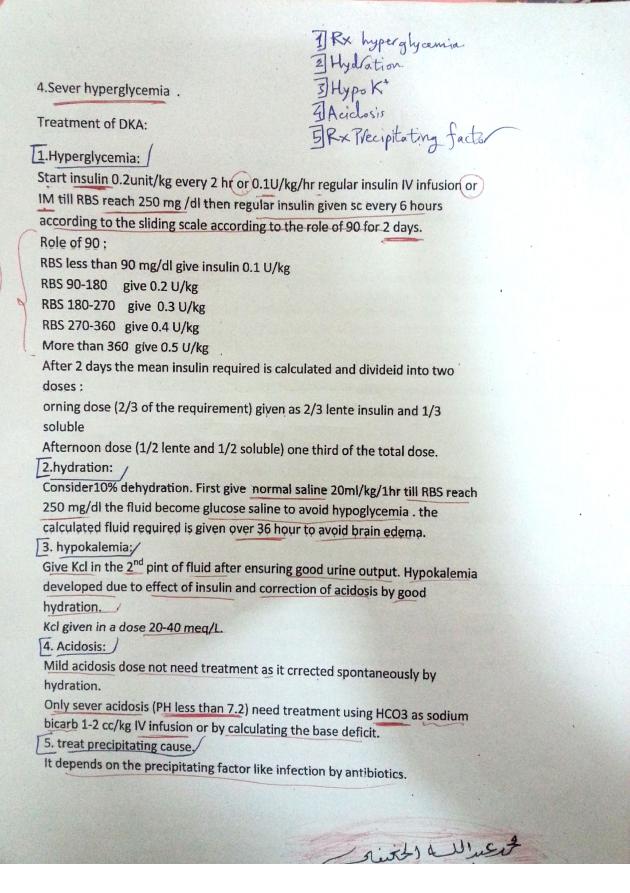 1 Rx hyperglycemia
2 Hydration
3 Hypo K+
4 Acidosis
5 Rx Precipitating factor
4.Sever hyperglycemia .
Treatment of DKA:
1.Hyperglycemia:
Start insulin 0.2unit/kg every 2 hr or 0.1U/kg/hr regular insulin IV infusion or
IM till RBS reach 250 mg /dl then regular insulin given sc every 6 hours
according to the sliding scale according to the role of 90 for 2 days.
Role of 90 :
RBS less than 90 mg/dl give insulin 0.1 U/kg
RBS 90-180 give 0.2 U/kg
RBS 180-270 give 0.3 U/kg
RBS 270-360 give 0.4 U/kg
More than 360 give 0.5 U/kg
After 2 days the mean insulin required is calculated and divideid into two
doses :
orning dose (2/3 of the requirement) given as 2/3 lente insulin and 1/3
soluble
Afternoon dose (1/2 lente and 1/2 soluble) one third of the total dose.
2.hydration:
Consider10% dehydration. First give normal saline 20ml/kg/1hr till RBS reach
250 mg/dl the fluid become glucose saline to avoid hypoglycemia . the
calculated fluid required is given over 36 hour to avoid brain edema.
3. hypokalemia:
Give Kcl in the 2nd pint of fluid after ensuring good urine output. Hypokalemia
developed due to effect of insulin and correction of acidosis by good
hydration.
Kcl given in a dose 20-40 meq/L.
4. Acidosis:
Mild acidosis dose not need treatment as it crrected spontaneously by
hydration.
Only sever acidosis (PH less than 7.2) need treatment using HCO3 as sodium
bicarb 1-2 cc/kg IV infusion or by calculating the base deficit.
5. treat precipitating cause.
It depends on the precipitating factor like infection by antibiotics.
عبد الله